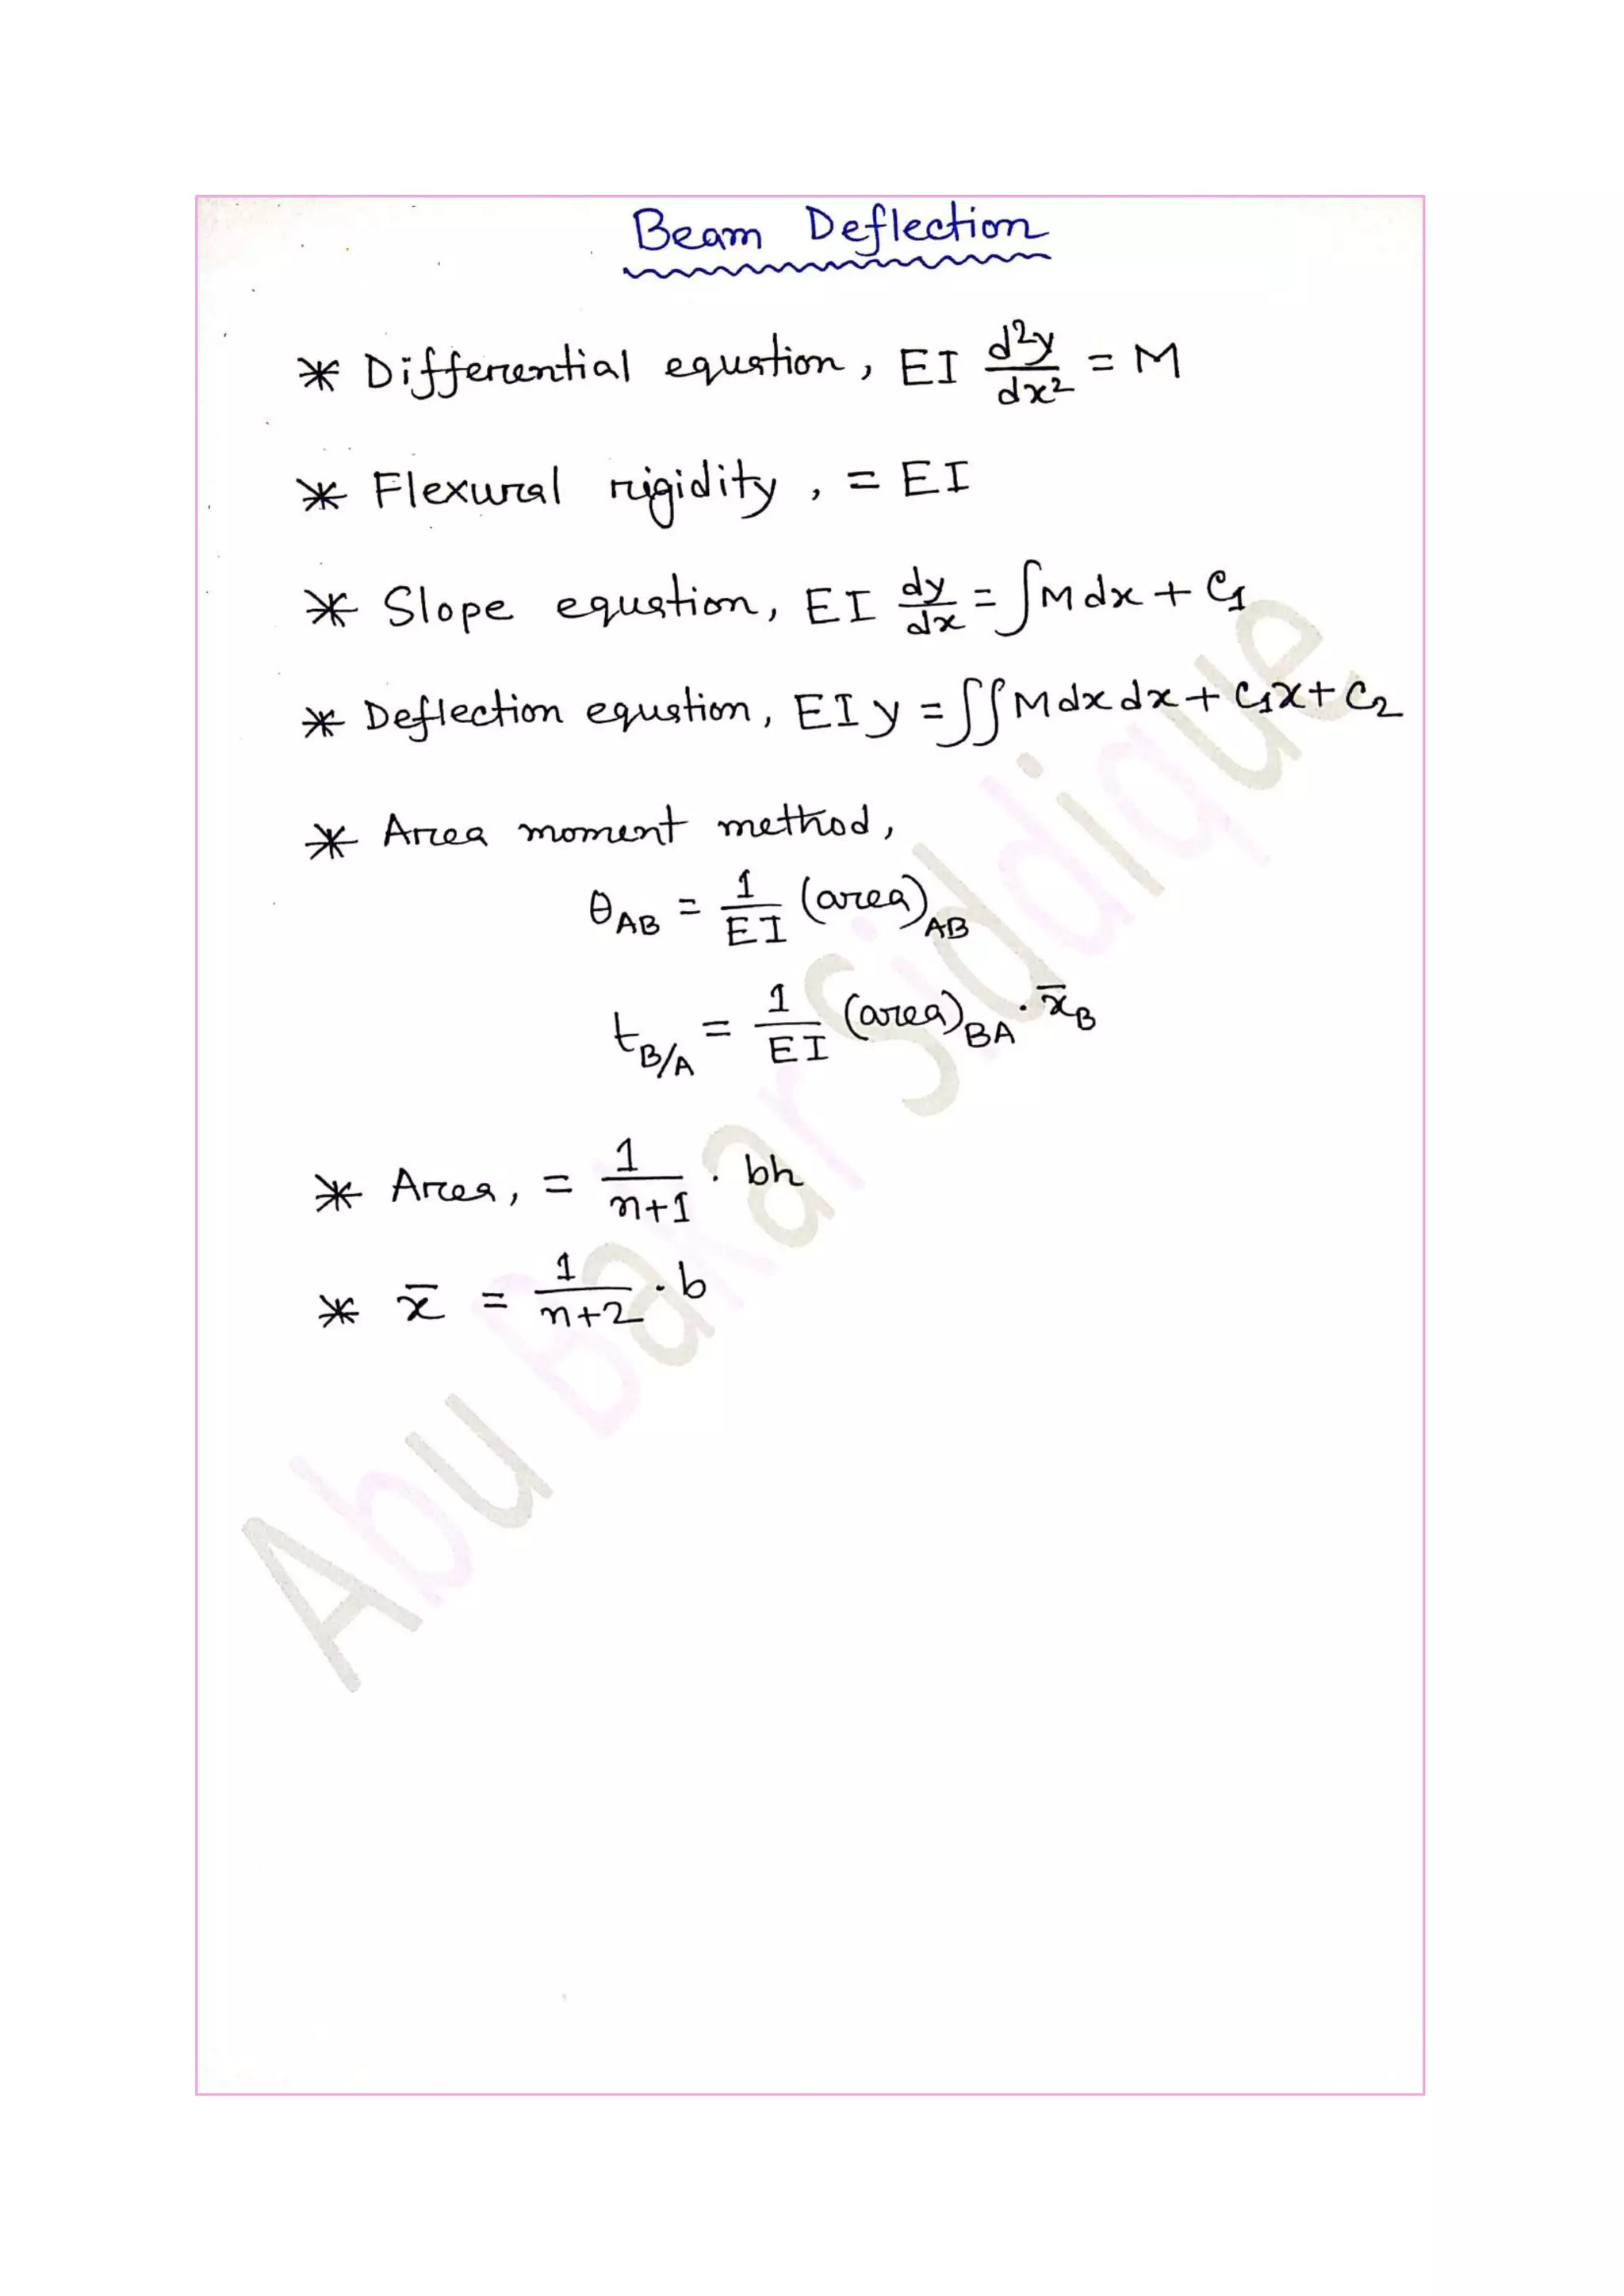 Beam Deflection
* Differential equation, EI d²y/dx² = M
* Flexural rigidity, = EI
* Slope equation, EI dy/dx = ∫M dx + C₁
* Deflection equation, EI y = ∬M dx dx + C₁x + C₂
* Area moment method,
θ_AB = 1/EI (area)_AB
t_B/A = 1/EI (area)_BA · x̄_B
* Area, = 1/n+1 · bh
* x̄ = 1/n+2 · b
Abu Bakar Siddique